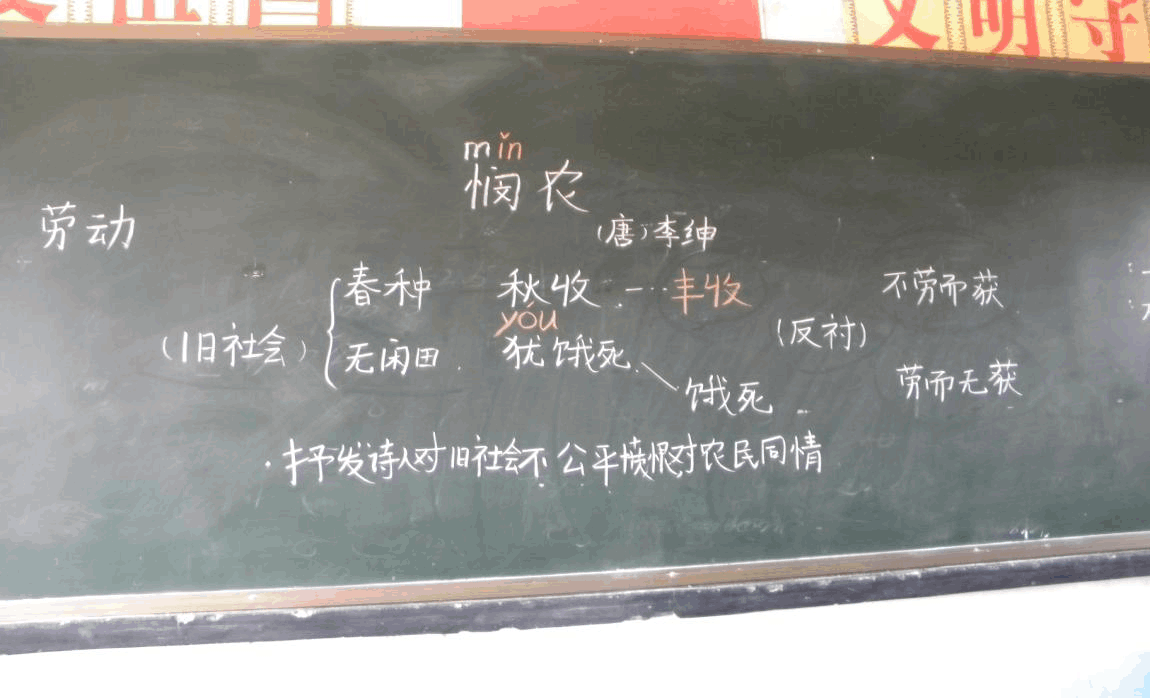 文明守
mǐn
悯农
劳动
(唐)李绅
春种 秋收 ……丰收 不劳而获
yóu
(旧社会) (反衬)
无闲田 犹饿死
饿死 劳而无获
·抒发诗人对旧社会不公平愤恨对农民同情